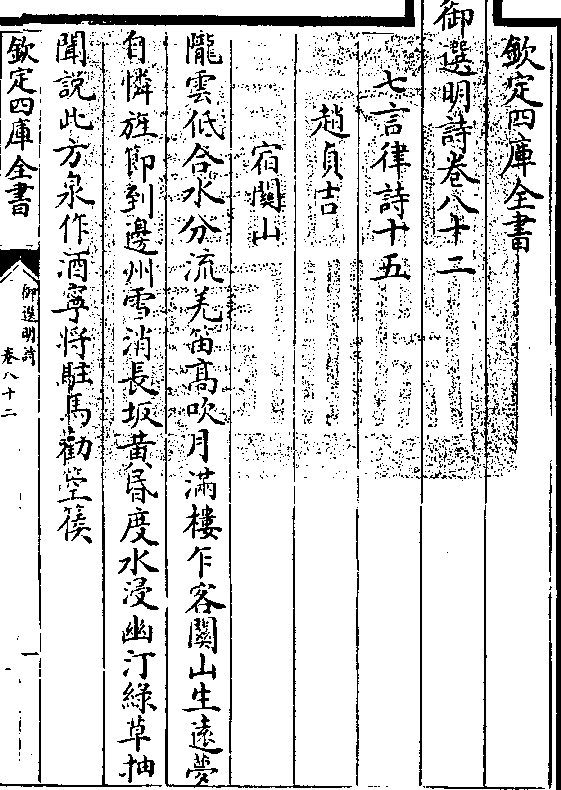 欽定四庫全書
御選明詩卷八十二
七言律詩十五
趙貞吉
宿關山
隴雲低合水分流羌笛高吹月滿樓乍客關山生遠夢
自憐旌節到邊州雪消長坂黄昏度水浸幽汀綠草抽
聞說此方泉作酒寧將駐馬勸箜篌
欽定四庫全書
御選明詩
卷八十二
一